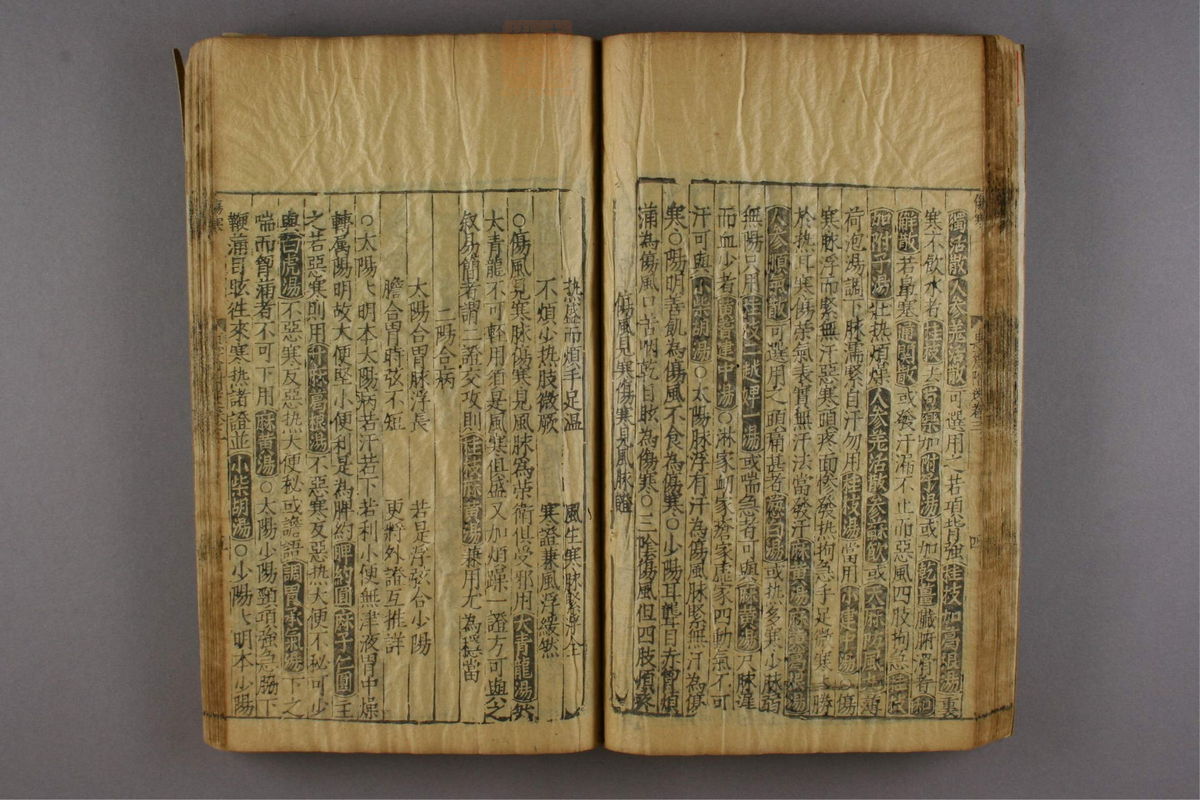 獨活散人參羌活散可選用之若項背強桂枝加葛根湯裏
寒不飲水者桂枝去芍藥加附子湯或加乾薑臟腑滑者和
解散若暈寒或發汗漏不止而惡風四肢拘急桂枝
加附子湯壯热煩燥人參羌活散參蘇飲或天麻防風
荷泡湯調下脉濡緊自汗勿用桂枝湯當用小建中湯○傷
寒脉浮而緊無汗惡寒頭疼面慘發热拘急手足微寒
於热耳寒傷榮氣表實無汗法當發汗麻黄湯麻黄葛根湯
人參順氣散可選用之頭痛甚者葱白湯或热多寒少脉弱
無陽只用桂枝二越婢一湯或喘急者可與麻黄湯尺脉遲
而血少者黄耆建中湯○淋家衂家瘡家虛家四動氣不可
汗可與小柴胡湯○太陽脉浮有汗為傷風脉緊無汗為傷
寒○陽明善飢為傷風不食為傷寒○少陽耳聾目赤胷煩
滿為傷風口苦咽乾目眩為傷寒○三隂傷風但四肢煩疼
傷風見寒傷寒見風脉證
热盛而煩手足温 風生寒脉緊浮全
不煩少热肢微厥 寒證兼風浮緩然
○傷風見寒脉傷寒見風脉為荣衛俱受邪用大青龍湯然
大青龍不可輕用須是風寒俱盛又加煩躁一證方可與之
叙易簡者謂二證交攻則桂枝麻黄湯兼用尤為穩當
二陽合病
太陽合胃脉浮長 若是浮弦合少陽
膽合胃時弦不短 更將外證互推詳
○太陽陽明本太陽病若汗若下若利小便無津液胃中燥
轉屬陽明故大便堅小便利是為脾約脾約圓麻子仁圓主
之若惡寒則用升麻葛根湯不惡寒反惡热大便不秘可少
與白虎湯不惡寒反惡热大便秘或譫語調胃承氣湯下之
喘而胷滿者不可下用麻黄湯○太陽少陽頸項強急脇下
鞕滿目眩往來寒热諸證並小柴胡湯○少陽陽明本少陽